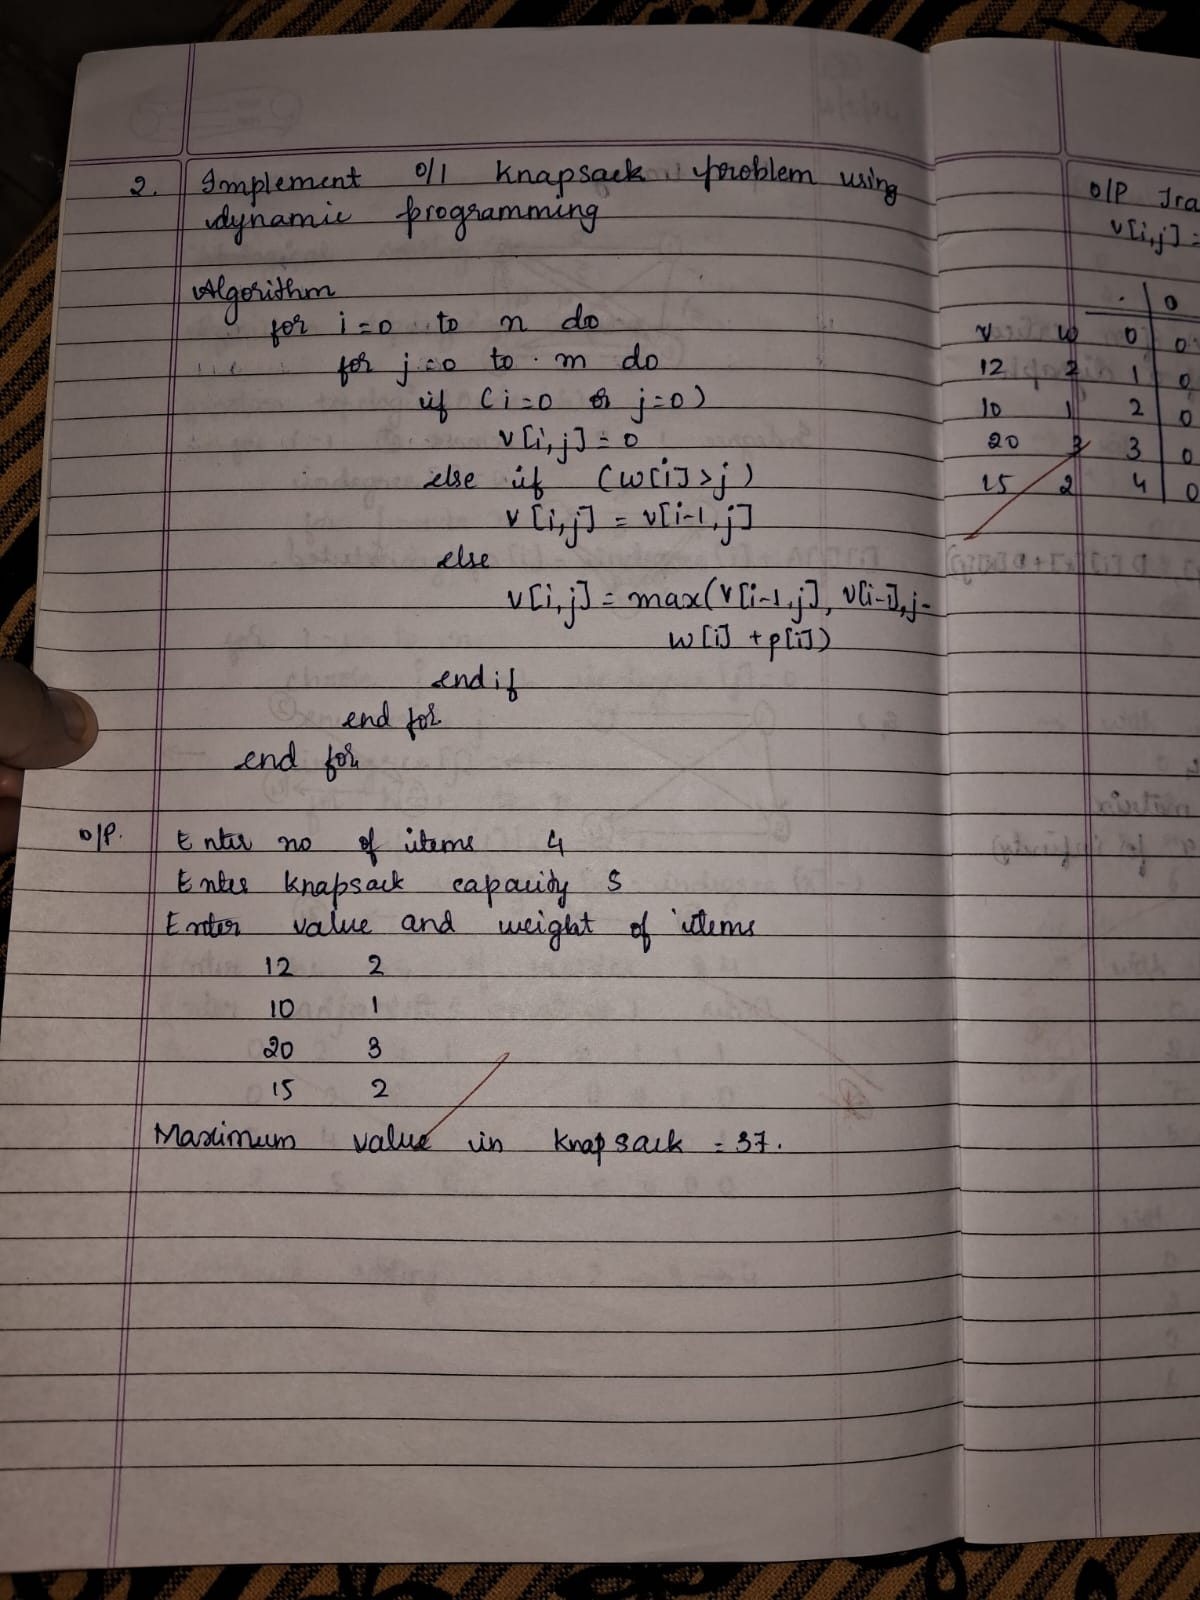 2. Implement 0/1 Knapsack problem using
dynamic programming
Algorithm
for i=0 to n do
for j=0 to m do
if (i=0 or j=0)
v[i,j]=0
else if (w[i]>j)
v[i,j] = v[i-1,j]
else
v[i,j] = max(v[i-1,j], v[i-1],j-
w[i] +p[i])
end if
end for
end for
O/P. Enter no of items 4
Enter knapsack capacity 5
Enter value and weight of items
12 2
10 1
20 3
15 2
Maximum value in knapsack = 37.
O/P Tra
v[i,j] =
0
v w 0 0
12 2 1 0
10 1 2 0
20 3 3 0
15 2 4 0